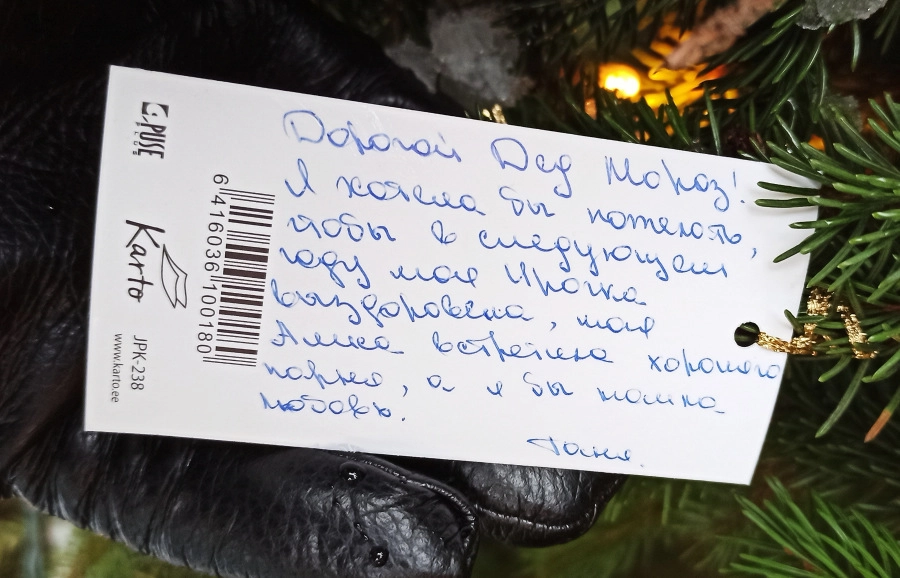 Дорогой Дед Мороз!
Я хотела бы пожелать,
чтобы в следующем
году моя Ирочка
выздоровела, моя
Алиса встретила хорошего
парня, а я бы нашла
любовь.
Таня.
PUSE
Karto
JPK-238
www.karto.ee
6 416036 100180